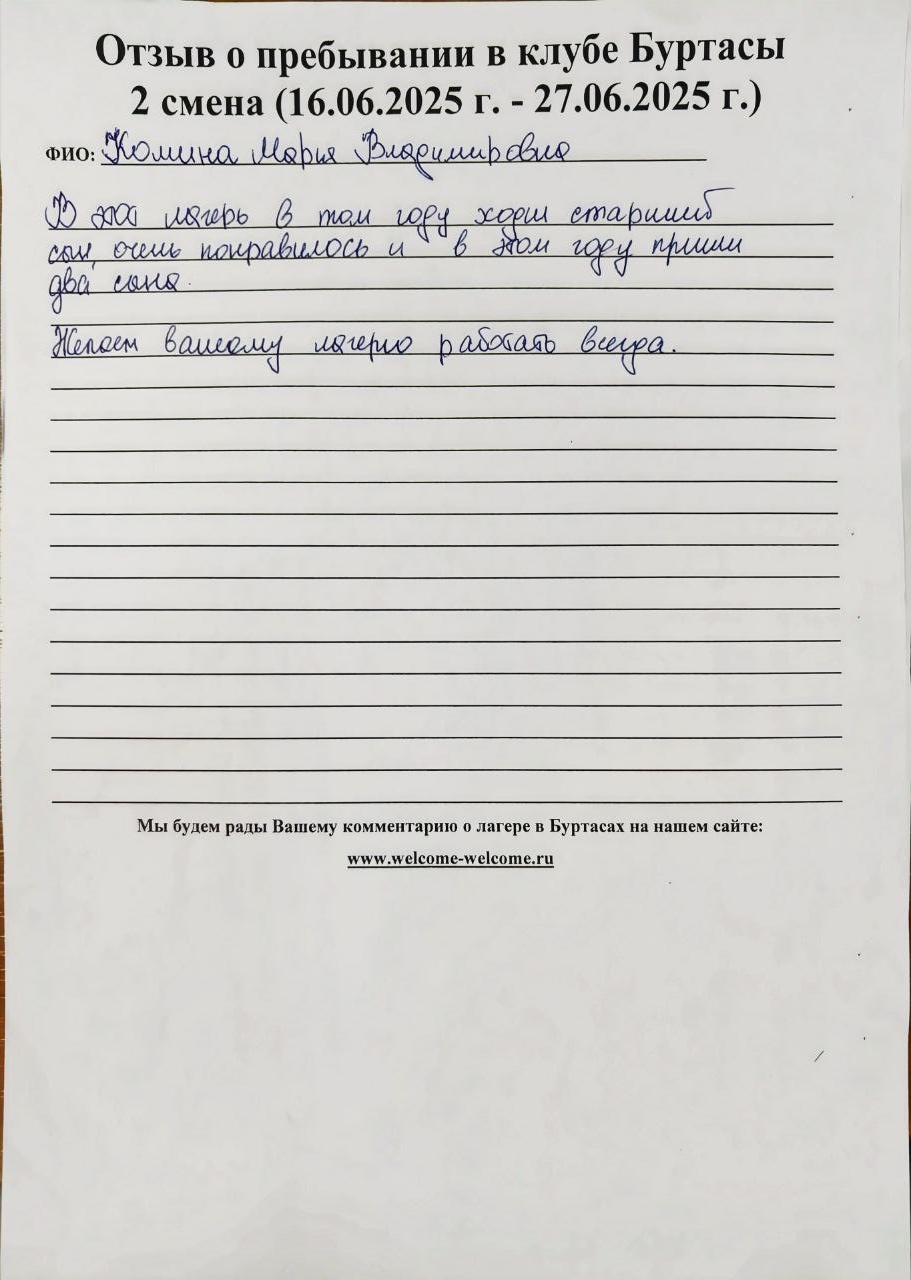 Отзыв о пребывании в клубе Буртасы
2 смена (16.06.2025 г. - 27.06.2025 г.)
ФИО: Комина Мария Владимировна
В этот лагерь в том году ходил старший
сын, очень понравилось и в этом году пришли
два сына.
Желаем вашему лагерю работать всегда.
Мы будем рады Вашему комментарию о лагере в Буртасах на нашем сайте:
www.welcome-welcome.ru